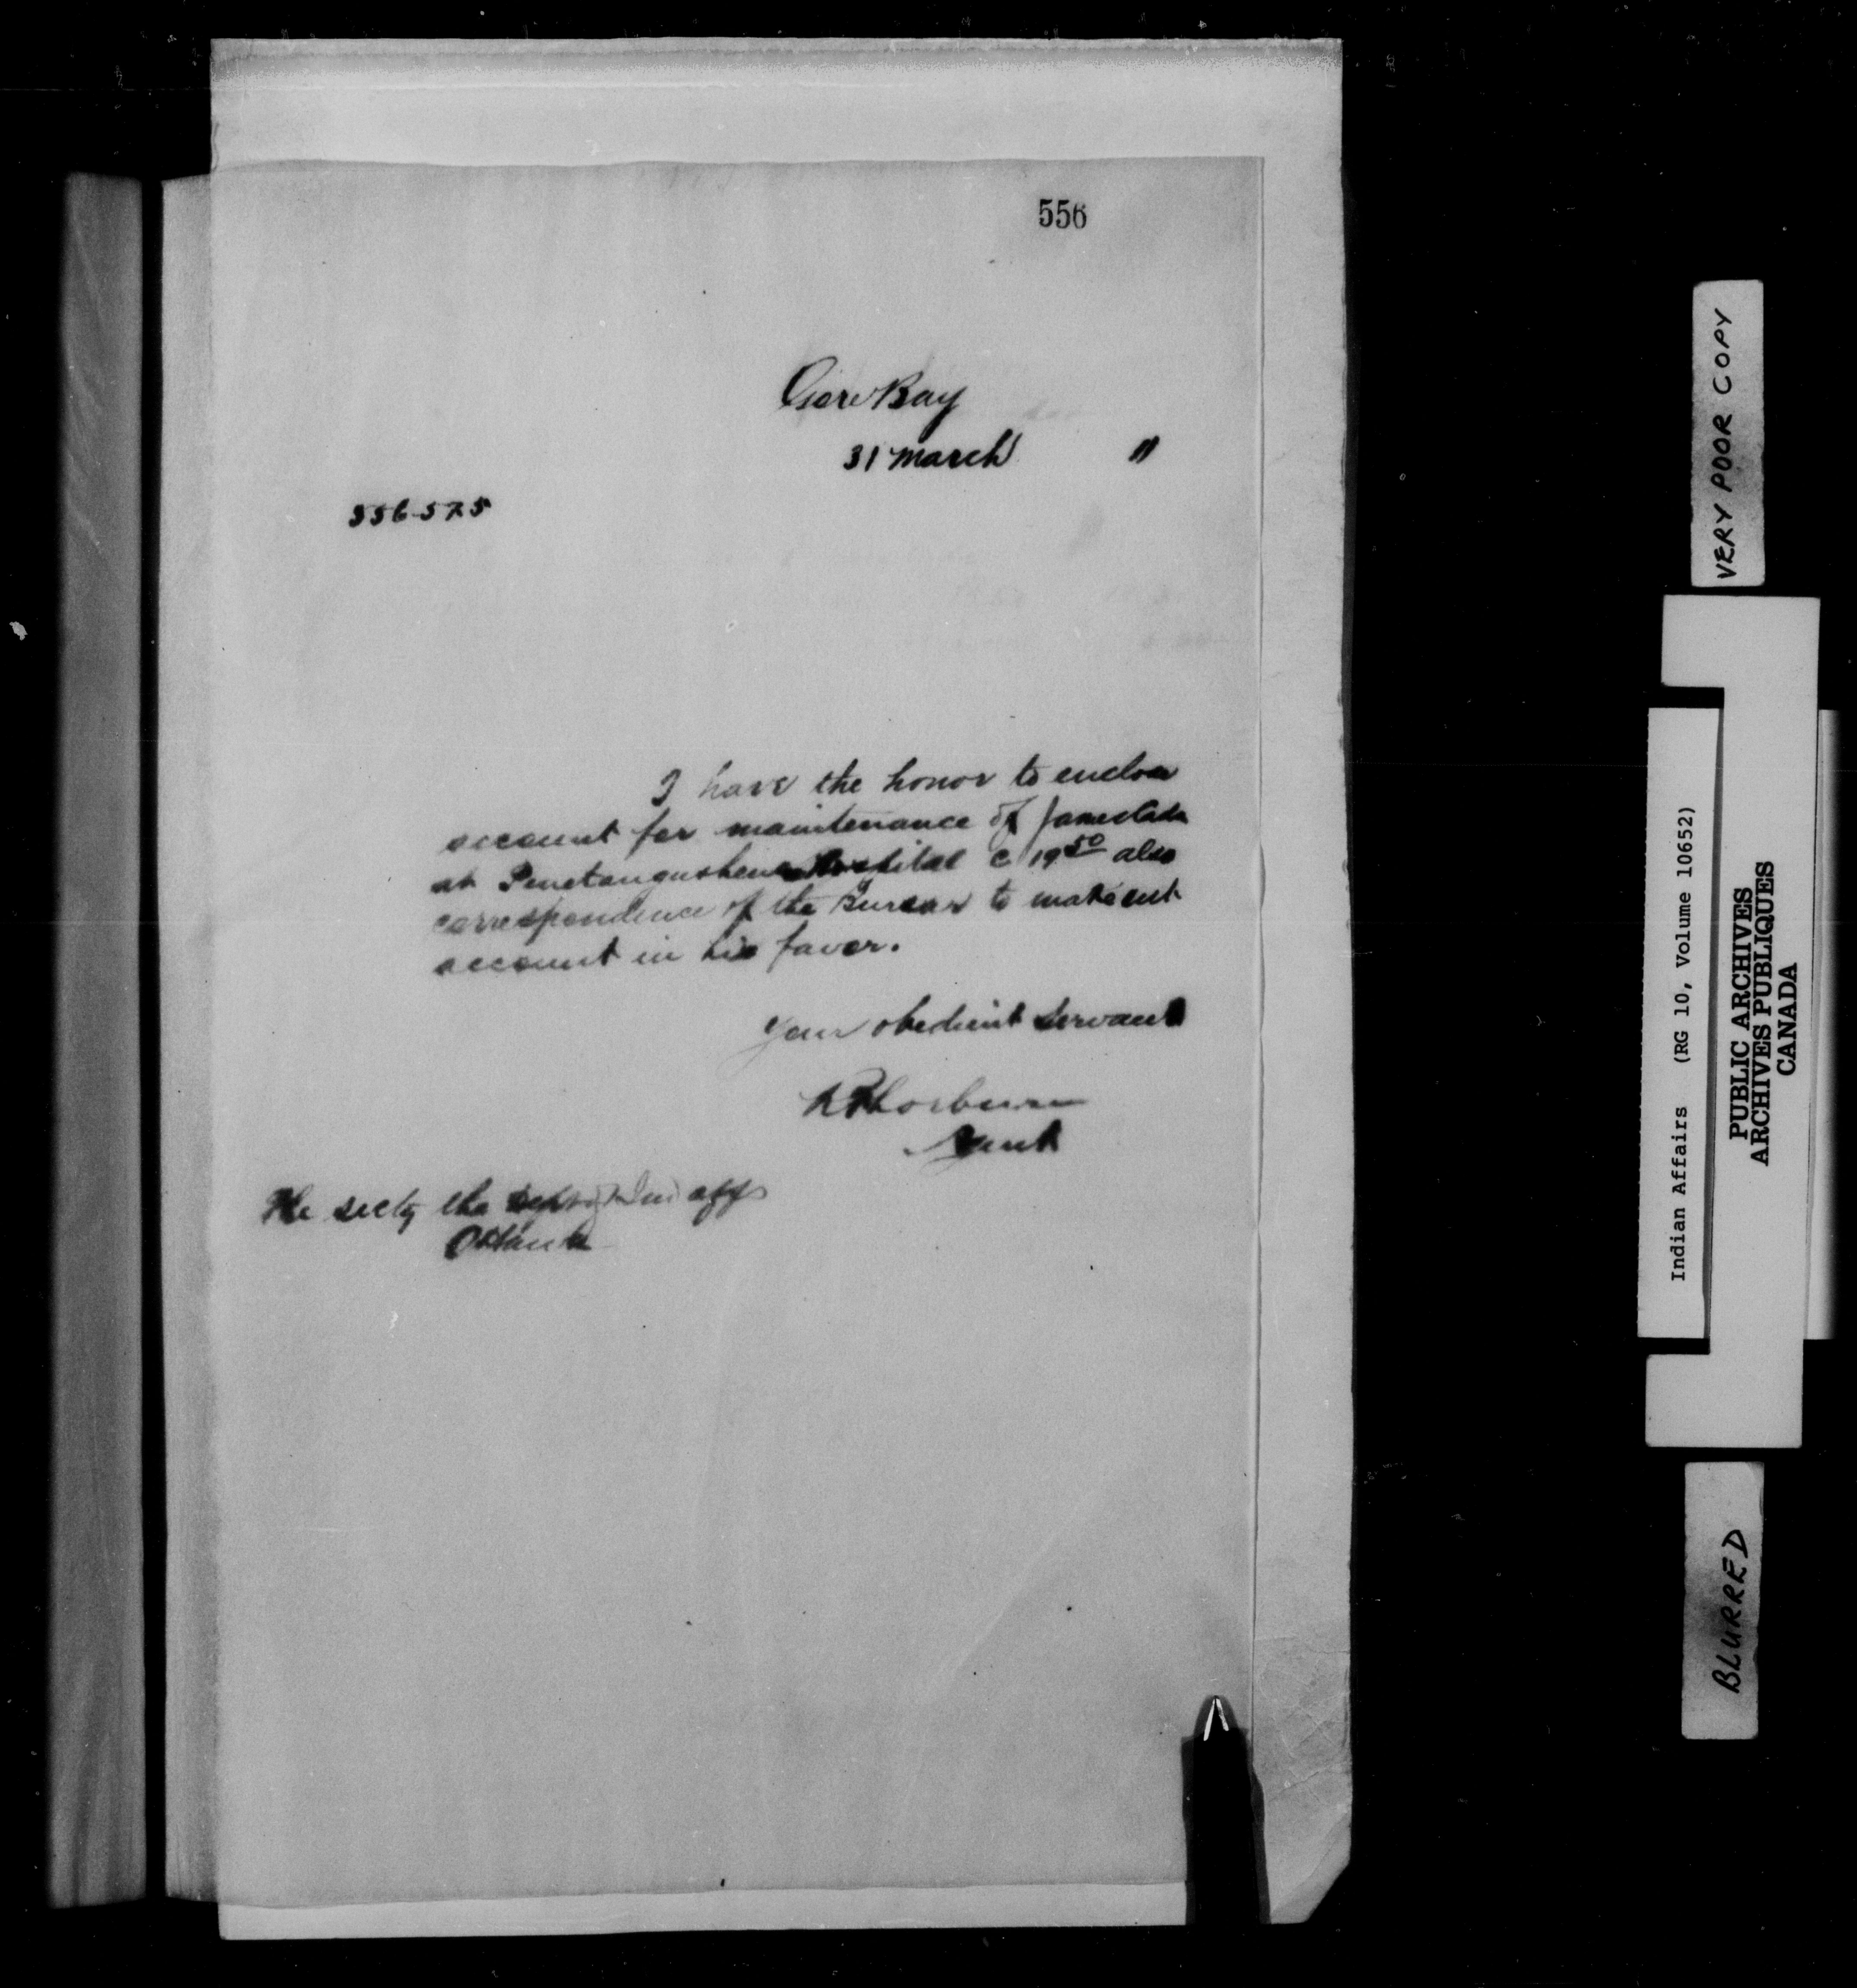 556
Gore Bay
31 march 11
356575
I have the honor to enclose
account for maintenance of James
at Penetangushene Hospital c 19.50 also
correspondence of the Bursar to make out
account in his favor.
Your obedient servant
R Thorburn
Agent
The secty the dept of Ind affs
Ottawa
VERY POOR COPY
Indian Affairs (RG 10, Volume 10652)
PUBLIC ARCHIVES
ARCHIVES PUBLIQUES
CANADA
BLURRED